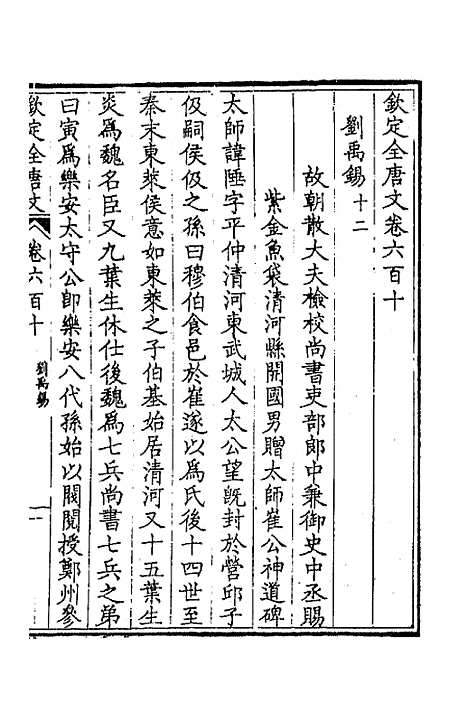 欽定全唐文卷六百十
劉禹錫十二
故朝散大夫檢校尚書吏部郎中兼御史中丞賜
紫金魚袋清河縣開國男贈太師崔公神道碑
太師諱陲字平仲清河東武城人太公望旣封於營邱子
伋嗣侯伋之孫曰穆伯食邑於崔遂以爲氏後十四世至
秦末東萊侯意如東萊之子伯基始居清河又十五葉生
炎爲魏名臣又九葉生休仕後魏爲七兵尚書七兵之弟
曰寅爲樂安太守公卽樂安八代孫始以閥閱授鄭州參
欽定全唐文 卷六百十 劉禹錫 一